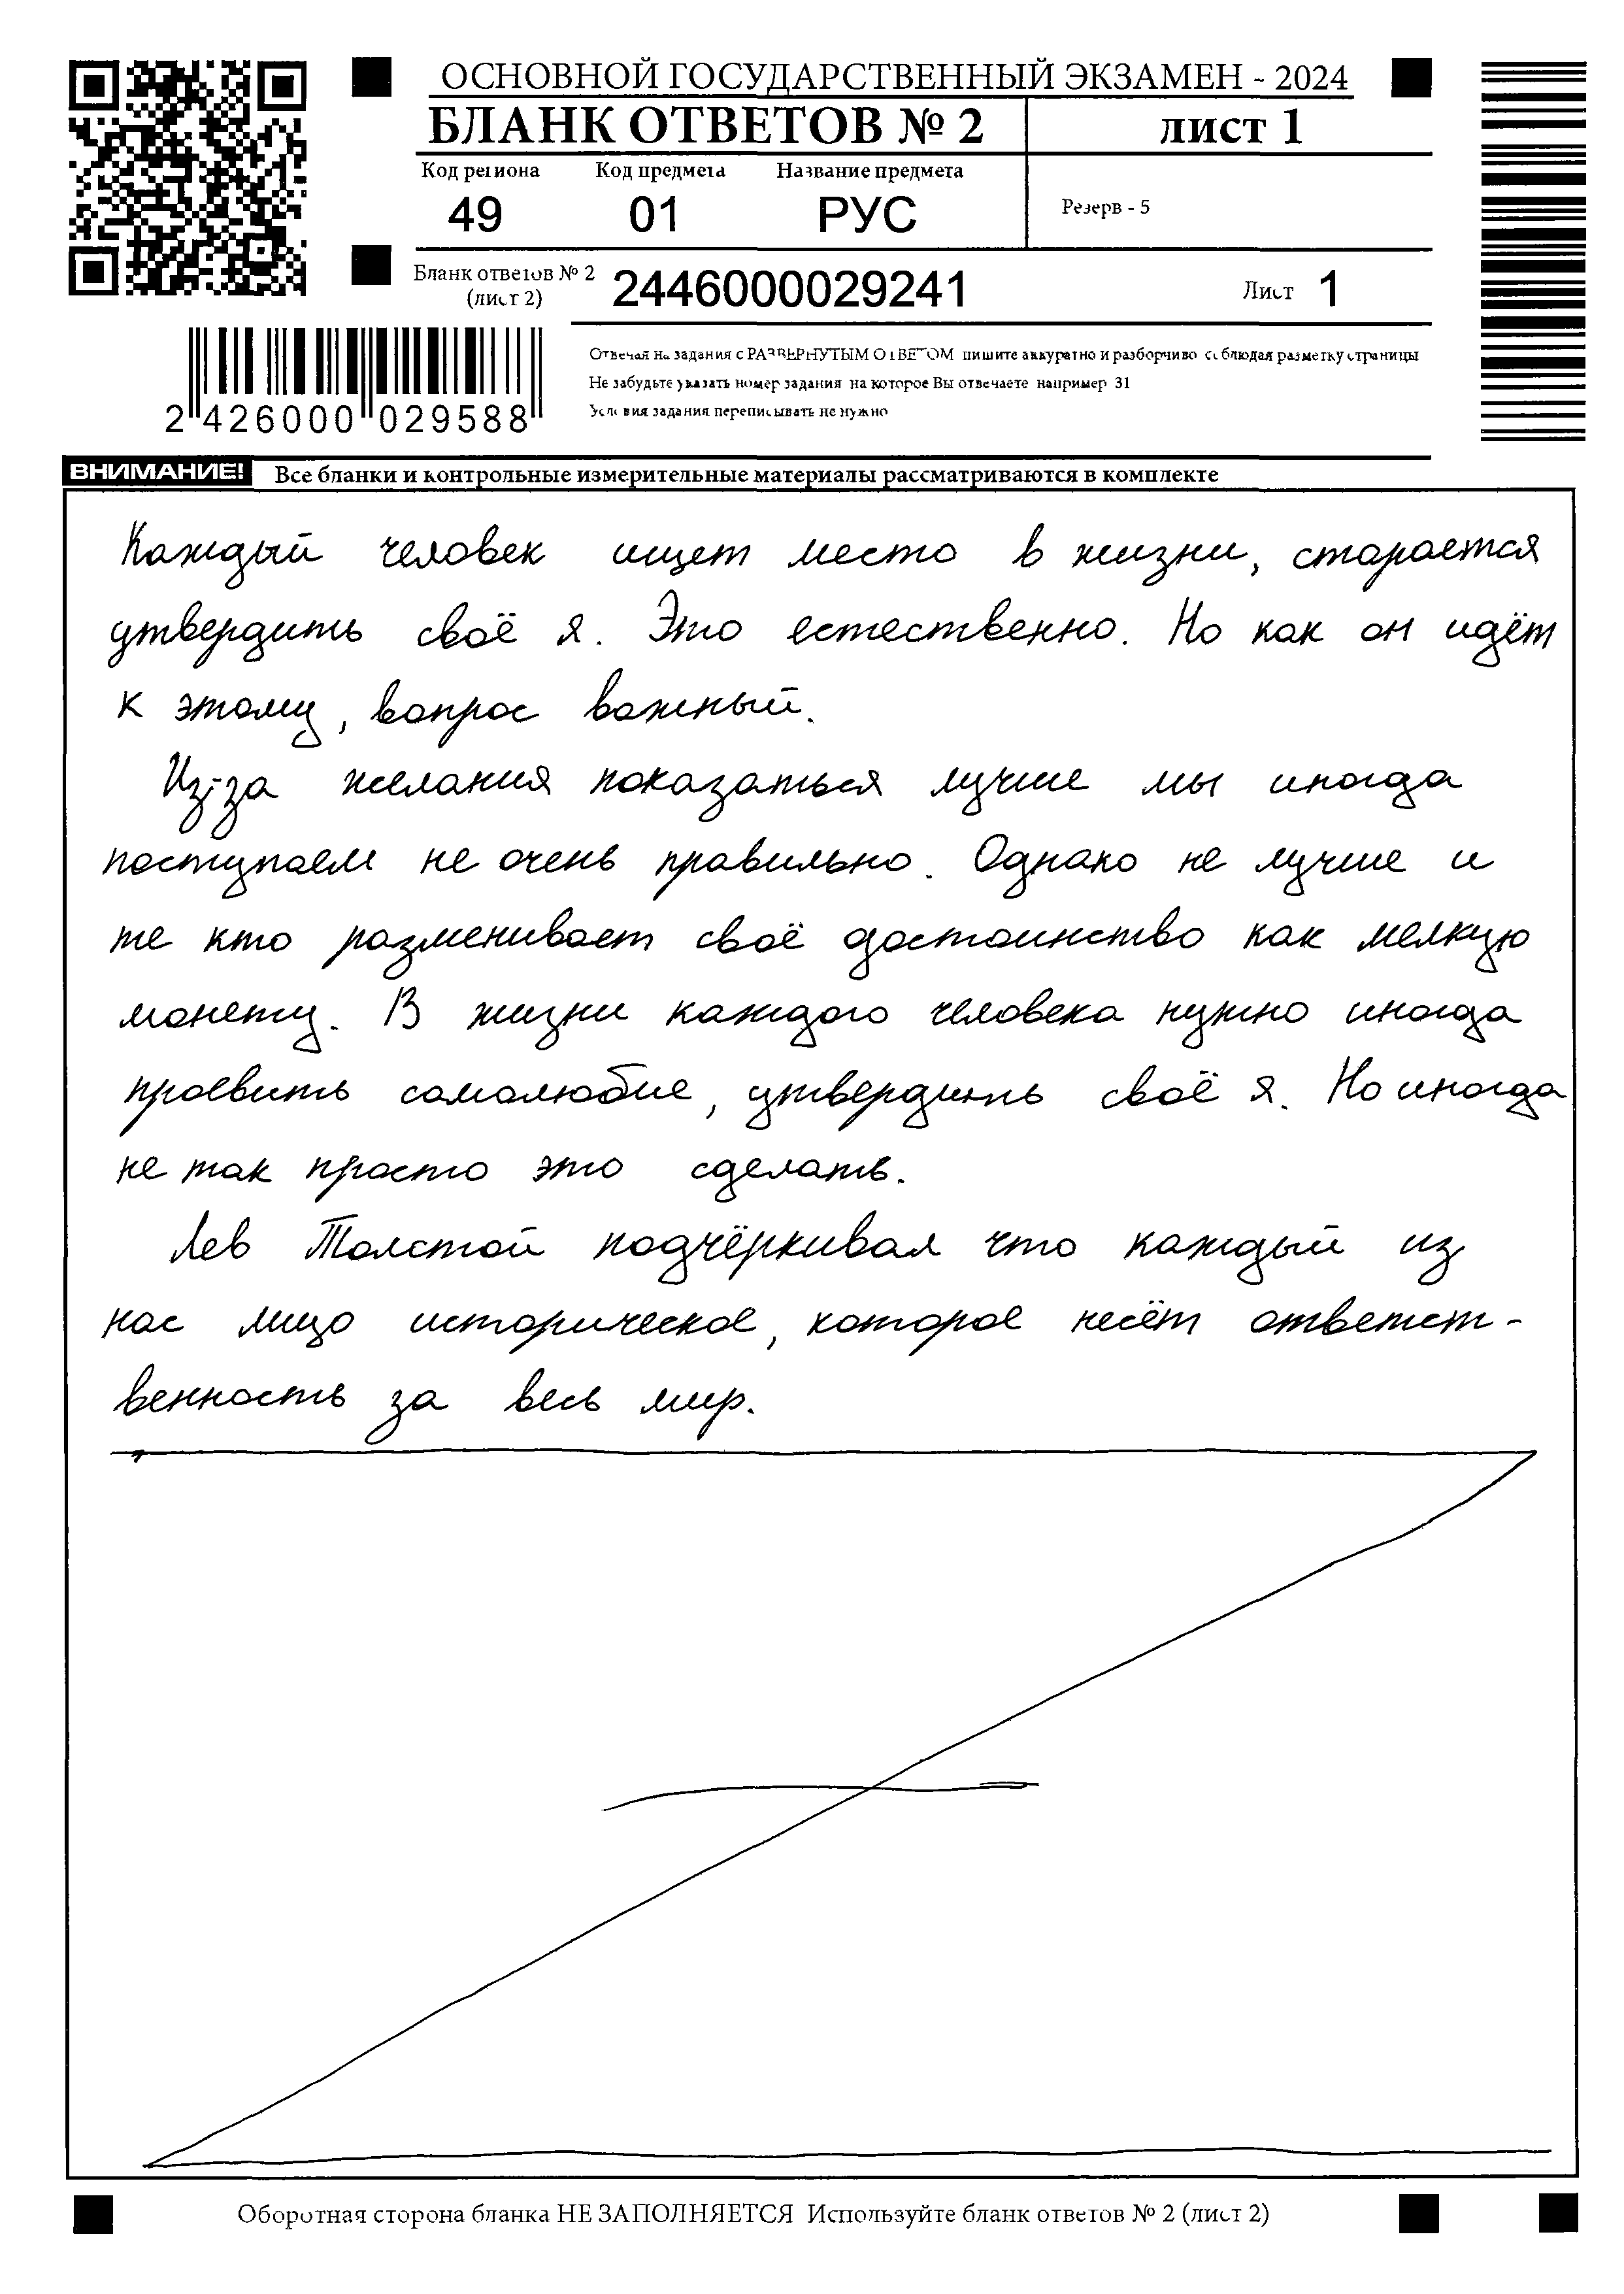 ОСНОВНОЙ ГОСУДАРСТВЕННЫЙ ЭКЗАМЕН - 2024
БЛАНК ОТВЕТОВ № 2 лист 1
Код региона Код предмета Название предмета
49 01 РУС Резерв - 5
Бланк ответов № 2 (лист 2) 2446000029241 Лист 1
Отвечая на задания с РАЗВЕРНУТЫМ ОТВЕТОМ пишите аккуратно и разборчиво соблюдая разметку страницы
Не забудьте указать номер задания на которое Вы отвечаете например 31
Условия задания переписывать не нужно
2 426000 029588
ВНИМАНИЕ! Все бланки и контрольные измерительные материалы рассматриваются в комплекте
Каждый человек ищет место в жизни, старается
утвердить своё я. Это естественно. Но как он идёт
к этому, вопрос важный.
Из-за желания показаться лучше мы иногда
поступаем не очень правильно. Однако не лучше и
те кто разменивает своё достоинство как мелкую
монету. В жизни каждого человека нужно иногда
проевить самолюбие, утвердить своё я. Но иногда
не так просто это сделать.
Лев Толстой подчёркивал что каждый из
нас лицо историческое, которое несёт ответст-
венность за весь мир.
Оборотная сторона бланка НЕ ЗАПОЛНЯЕТСЯ Используйте бланк ответов № 2 (лист 2)